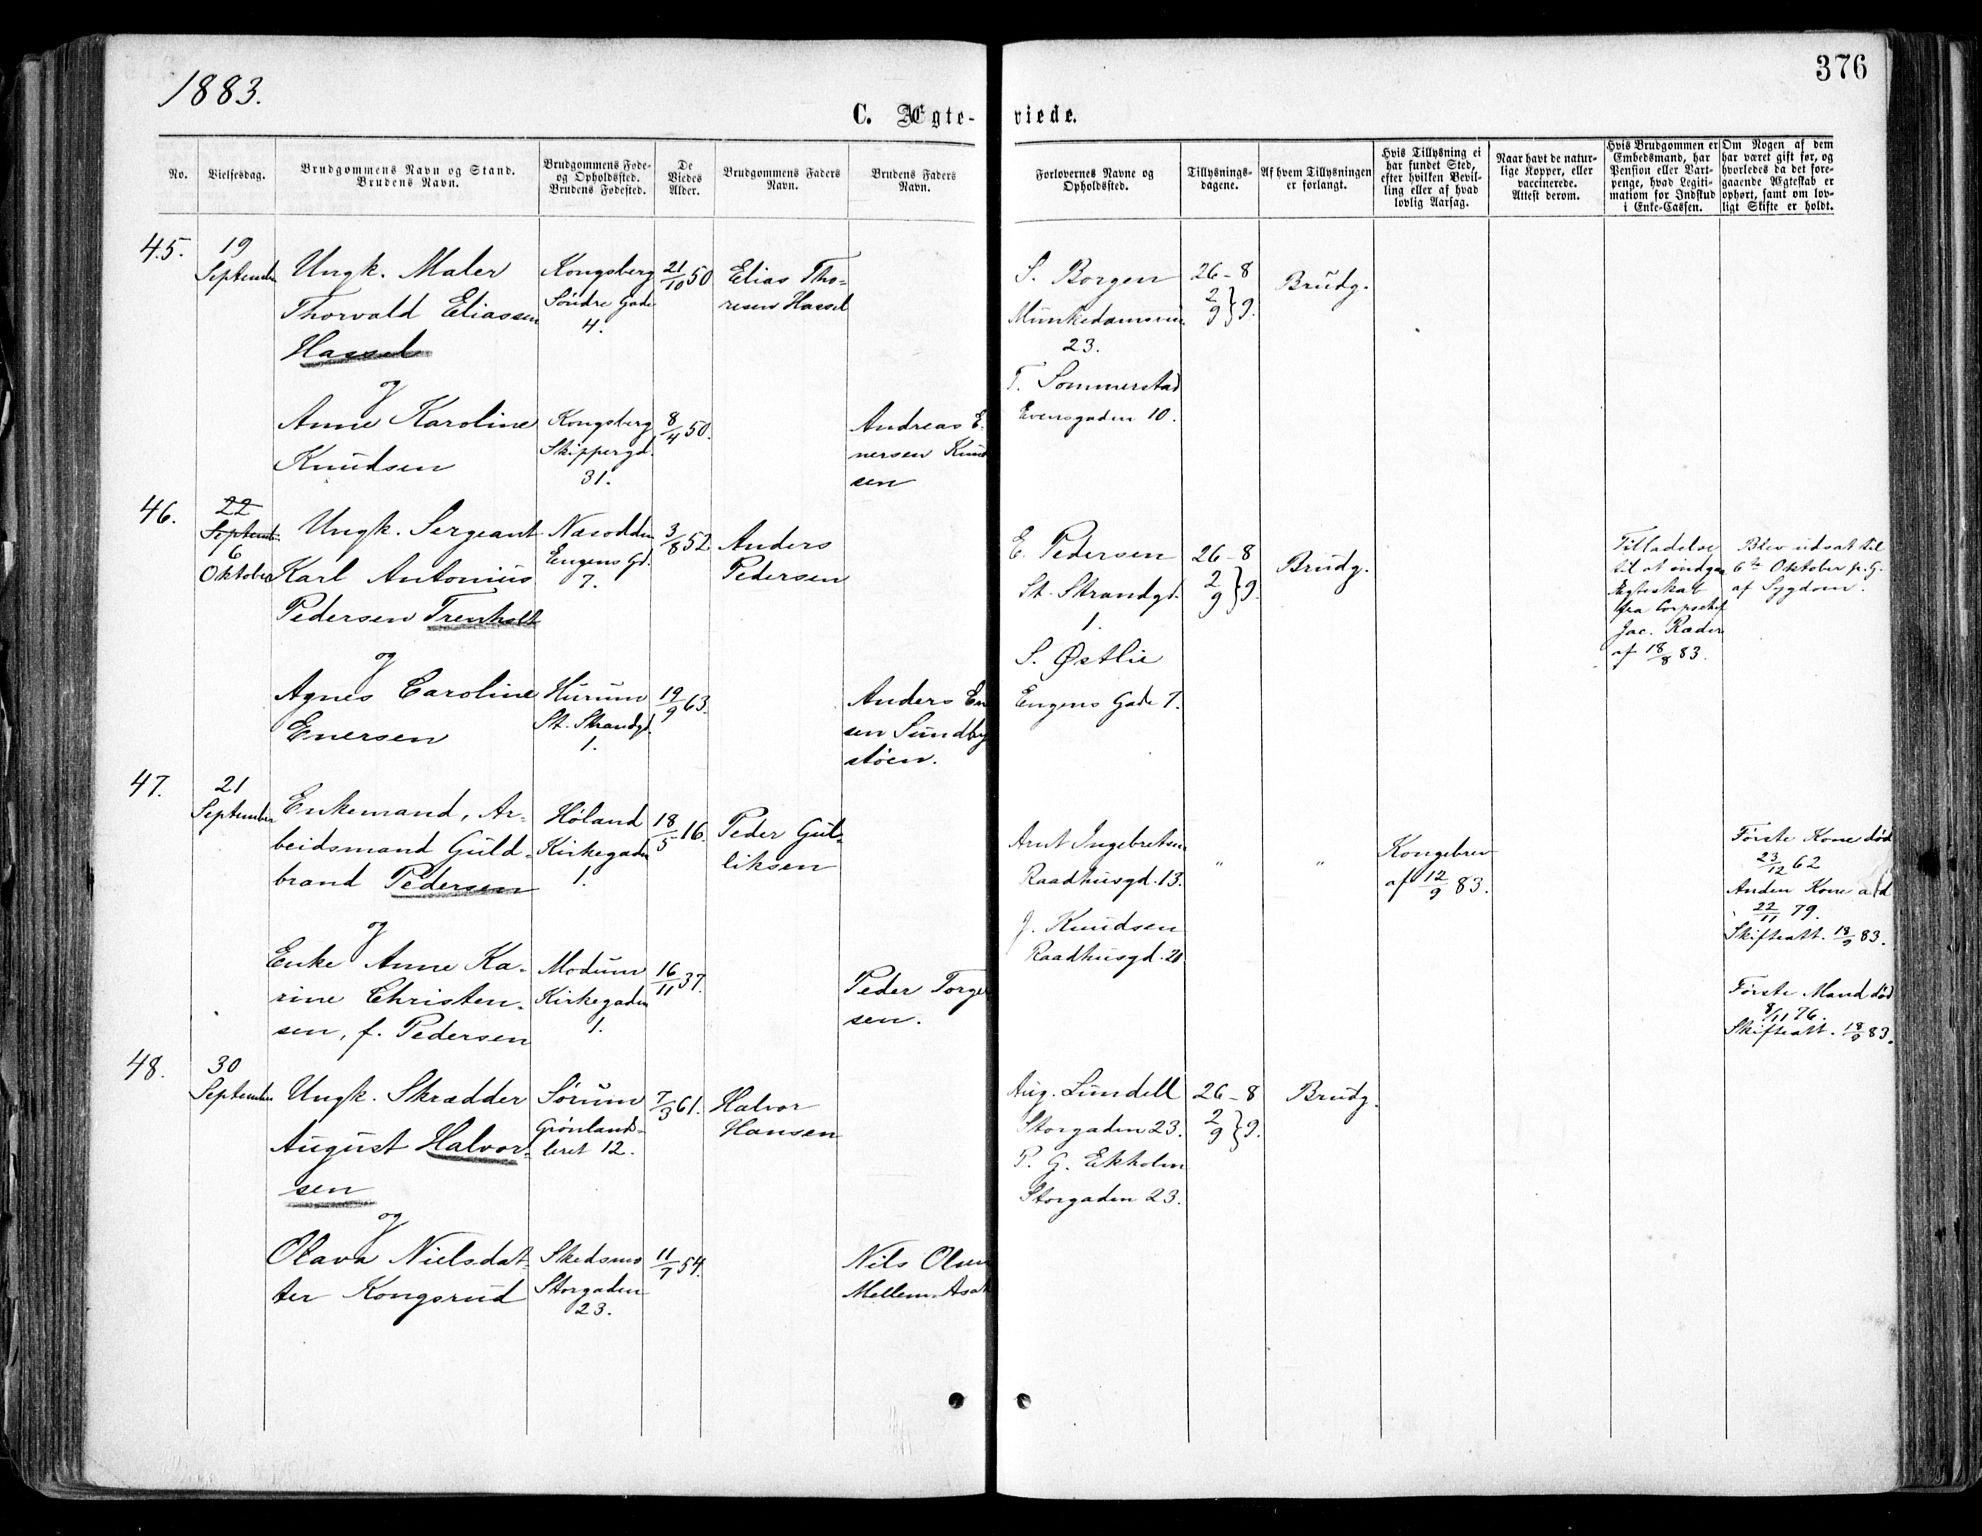 1883.
376
C. Ægte-
viede.
No.
Vielsesdag.
Brudgommens Navn og Stand.
Brudens Navn.
Brudgommens Føde-
og Opholdssted.
Brudens Fødested.
De
Viedes
Alder.
Brudgommens Faders
Navn.
Brudens Faders
Navn.
Forlovernes Navne og
Opholdssted.
Tillysnings-
dagene.
Af hvem Tillysningen
er forlangt.
Hvis Tillysning ei
har fundet Sted,
efter hvilken Bevil-
ling eller af hvad
lovlig Aarsag.
Naar havt de natur-
lige Kopper, eller
vaccinerede.
Attest derom.
Hvis Brudgommen er
Embedsmand, har
Pension eller Vart-
penge, hvad Legiti-
mation for Indskud
i Enke-Cassen.
Om Nogen af dem
har været gift før, og
hvorledes da det fore-
gaaende Ægteskab er
ophørt, samt om lov-
ligt Skifte er holdt.
45.
19
September
Ungk. Maler
Thorvald Eliassen
Hassel
og
Anne Karoline
Knudsen
Kongsberg
Søndre Gade
4.
Kongsberg
Skippergd.
31.
21/10 50
8/4 50.
Elias Tho-
resen Hassel
Andreas E
nersen Knud
sen
S. Borgen
Munkedamsvei
23.
T. Sommerstad
Evensgaden 10.
26-8
2/9 } 9.
Brudg.
46.
22
September
6
Oktober
Ungk. Sergeant
Karl Antonius
Pedersen Trenholt
og
Agnes Caroline
Enersen
Nesodden
Eugens Gd.
7.
Hurum
St. Strandgd.
1.
3/8 52
19/9 63.
Anders
Pedersen
Anders En
sen Sundby
støen.
E. Pedersen
St. Strandgd.
1.
S. Østlie
Eugens Gade 7.
26-8
2/9 } 9.
Brudg.
Tilladelse
til at indgaa
Ægteskab
fra Corpschef
Jac. Ræder
af 18/8 83.
Blev udsat til
6te Oktober p. G.
af Sygdom.
47.
21
September
Enkemand, Ar-
beidsmand Guld-
brand Pedersen
og
Enke Anne Ka-
rine Christen-
sen, f. Pedersen
Høland
Kirkegaden
1.
Modum
Kirkegaden
1.
18/5 16.
16/11 37.
Peder Gul-
liksen
Peder Torger
sen.
Arnt Ingebretsen
Raadhusgd. 13.
J. Knudsen
Raadhusgd. 20
"
"
Kongebrev
af 12/9 83.
Første Kone død
23/12 62
Anden Kone død
22/11 79.
Skifteatt. 18/9 83.
Første Mand død
8/11 76.
Skifteatt. 18/9 83.
48.
30
September
Ungk. Skrædder
August Halvor-
sen
og
Olava Nielsdat-
ter Kongsrud
Sørum
Grønlands-
leret 12.
Skedsmo
Storgaden
23.
7/3 61.
11/7 54.
Halvor
Hansen
Nils Olsen
Mellem-Asak
Aug. Lundell
Storgaden 23.
P. G. Ekholm
Storgaden 23.
26-8
2/9 } 9.
Brudg.